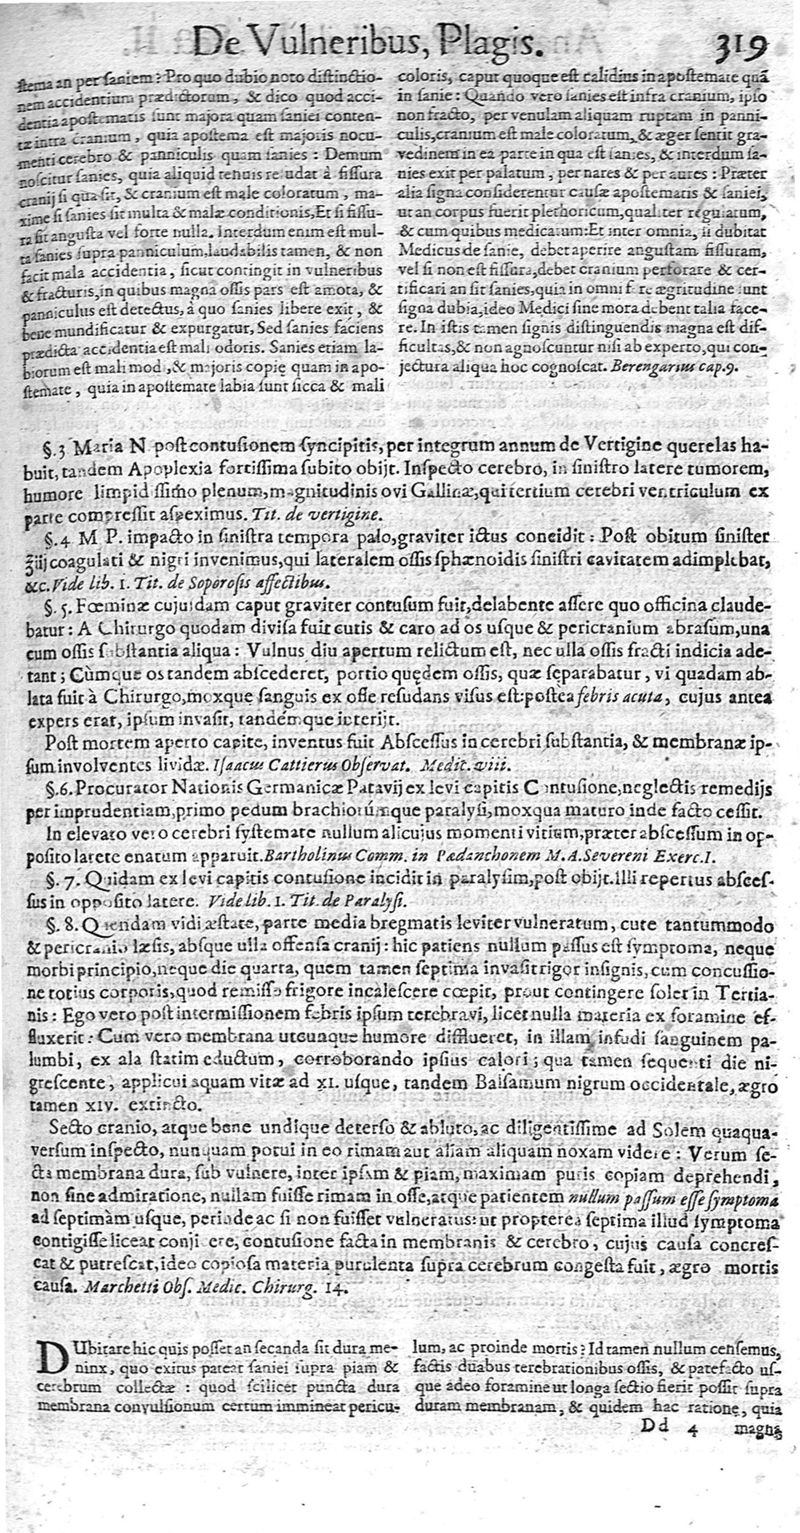 De Vulneribus, Plagis. 319
stema an per saniem? Pro quo dubio noto distinctio-
nem accidentium prædictorum, & dico quod acci-
dentia apostematis sunt majora quam saniei conten-
tæ intra cranium, quia apostema est majoris nocu-
menti cerebro & panniculis quam sanies: Demum
noscitur sanies, quia aliquid tenuis resudat à fissura
cranij si qua sit, & cranium est male coloratum, ma-
xime si sanies sit multa & malæ conditionis, Et si fissu-
ra sit angusta vel forte nulla. Interdum enim est mul-
ta sanies supra panniculum, laudabilis tamen, & non
facit mala accidentia, sicut contingit in vulneribus
& fracturis, in quibus magna ossis pars est amota, &
panniculus est detectus, à quo sanies libere exit, &
bene mundificatur & expurgatur, Sed sanies faciens
prædicta accidentia est mali odoris. Sanies etiam la-
biorum est mali modi, & majoris copię quam in apo-
stemate, quia in apostemate labia sunt sicca & mali
coloris, caput quoque est calidius in apostemate quã
in sanie: Quando vero sanies est infra cranium, ipso
non fracto, per venulam aliquam ruptam in panni-
culis, cranium est male coloratum, & æger sentit gra-
vedinem in ea parte in qua est sanies, & interdum sa-
nies exit per palatum, per nares & per aures: Præter
alia signa considerentur causæ apostematis & saniei,
ut an corpus fuerit plethoricum, qualiter regulatum,
& cum quibus medicatum: Et inter omnia, si dubitat
Medicus de sanie, debet aperire angustam fissuram,
vel si non est fissura, debet cranium perforare & cer-
tificari an sit sanies, quia in omni fere ægritudine sunt
signa dubia, ideo Medici sine mora debent talia face-
re. In istis tamen signis distinguendis magna est dif-
ficultas, & non agnoscuntur nisi ab experto, qui con-
jectura aliqua hoc cognoscat. Berengarius cap. 9.
§. 3 Maria N. post contusionem syncipitis, per integrum annum de Vertigine querelas ha-
buit, tandem Apoplexia fortissima subito obijt. Inspecto cerebro, in sinistro latere tumorem,
humore limpidissimo plenum, magnitudinis ovi Gallinæ, qui tertium cerebri ventriculum ex
parte compressit aspeximus. Tit. de vertigine.
§. 4 M P. impacto in sinistra tempora palo, graviter ictus concidit: Post obitum sinister
℥iij coagulati & nigri invenimus, qui lateralem ossis sphænoidis sinistri cavitatem adimplebat,
&c. Vide lib. 1. Tit. de Soporosis affectibus.
§. 5. Fœminæ cujusdam caput graviter contusum fuit, delabente assere quo officina claude-
batur: A Chirurgo quodam divisa fuit cutis & caro ad os usque & pericranium abrasum, una
cum ossis substantia aliqua: Vulnus diu apertum relictum est, nec ulla ossis fracti indicia ade-
tant; Cùmque os tandem abscederet, portio quędem ossis, quæ separabatur, vi quadam ab-
lata fuit à Chirurgo, moxque sanguis ex osse resudans visus est: postea febris acuta, cujus antea
expers erat, ipsum invasit, tandemque interijt.
Post mortem aperto capite, inventus fuit Abscessus in cerebri substantia, & membranæ ip-
sum involventes lividæ. Isaacus Cattierus Observat. Medic. xviii.
§. 6. Procurator Nationis Germanicæ Patavij ex levi capitis Contusione, neglectis remedijs
per imprudentiam, primo pedum brachiorúmque paralysi, moxqua maturo inde facto cessit.
In elevato vero cerebri systemate nullum alicujus momenti vitium, præter abscessum in op-
posito latere enatum apparuit. Bartholinus Comm. in Pædanchonem M. A. Severeni Exerc. I.
§. 7. Quidam ex levi capitis contusione incidit in paralysim, post obijt. illi repertus absces-
sus in opposito latere. Vide lib. 1. Tit. de Paralysi.
§. 8. Quendam vidi æstate, parte media bregmatis leviter vulneratum, cute tantummodo
& pericranio læsis, absque ulla offensa cranij: hic patiens nullum passus est symptoma, neque
morbi principio, neque die quarta, quem tamen septima invasit rigor insignis, cum concussio-
ne totius corporis, quod remisso frigore incalescere cœpit, prout contingere solet in Tertia-
nis: Ego vero post intermissionem febris ipsum terebravi, licet nulla materia ex foramine ef-
fluxerit: Cum vero membrana utcunque humore difflueret, in illam infudi sanguinem pa-
lumbi, ex ala statim eductum, corroborando ipsius calori; qua tamen sequenti die ni-
grescente, applicui aquam vitæ ad XI. usque, tandem Balsamum nigrum occidentale, ægro
tamen XIV. extincto.
Secto cranio, atque bene undique deterso & abluto, ac diligentissime ad Solem quaqua-
versum inspecto, nunquam potui in eo rimam aut aliam aliquam noxam videre: Verum se-
cta membrana dura, sub vulnere, inter ipsam & piam, maximam puris copiam deprehendi,
non sine admiratione, nullam fuisse rimam in osse, atque patientem nullum passum esse symptoma
ad septimàm usque, perinde ac si non fuisset vulneratus: ut propterea septima illud symptoma
contigisse liceat conjicere, contusione facta in membranis & cerebro, cujus causa concres-
cat & putrescat, ideo copiosa materia purulenta supra cerebrum congesta fuit, ægro mortis
causa. Marchetti Obs. Medic. Chirurg. 14.
DUbitare hic quis posset an secanda sit dura me-
ninx, quo exitus pateat saniei supra piam &
cerebrum collectæ: quod scilicet puncta dura
membrana convulsionum certum immineat pericu-
lum, ac proinde mortis? Id tamen nullum censemus,
factis duabus terebrationibus ossis, & patefacto us-
que adeo foramine ut longa sectio fieri possit supra
duram membranam, & quidem hac ratione, quia
Dd 4 magna